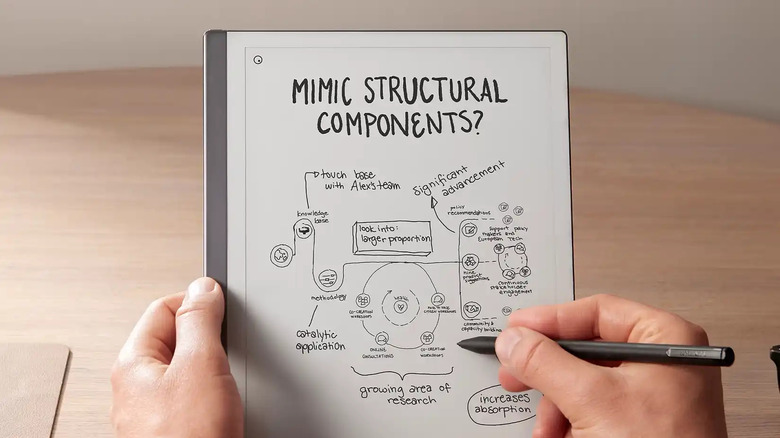 MIMIC STRUCTURAL
COMPONENTS?
touch base
with Alex's team
significant
advancement
knowledge
base
look into:
larger proportion
policy
recommendations
support policy
makers and
European Tech
continuous
stakeholder
engagement
methodology
CO-CREATION
WORKSHOPS
ONLINE
CONSULTATIONS
CO-CREATION
WORKSHOPS
community &
capacity building
catalytic
application
growing area of
research
increases
absorption